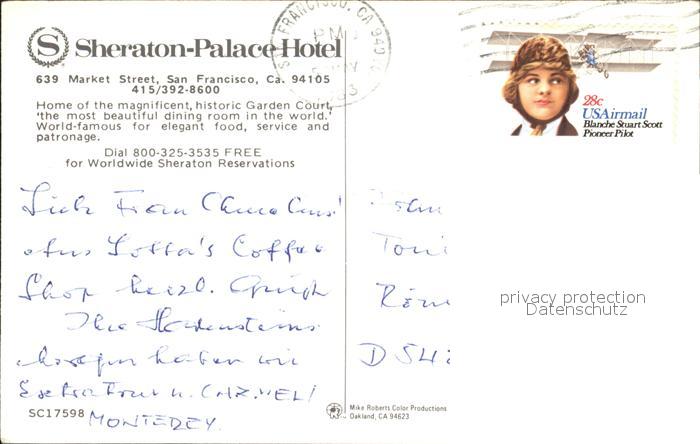 S Sheraton-Palace Hotel
639 Market Street, San Francisco, Ca. 94105
415/392-8600
Home of the magnificent, historic Garden Court,
'the most beautiful dining room in the world.'
World-famous for elegant food, service and
patronage.
Dial 800-325-3535 FREE
for Worldwide Sheraton Reservations
FRANCISCO, CA 940
PM
28c
USAirmail
Blanche Stuart Scott
Pioneer Pilot
Frau
Lotta's Coffee
Shop herzl.
Ihre
haben wir
Extratour n. CARMEL/
MONTEREY.
Toni
D 54
privacy protection
Datenschutz
SC17598
Mike Roberts Color Productions
Oakland, CA 94623